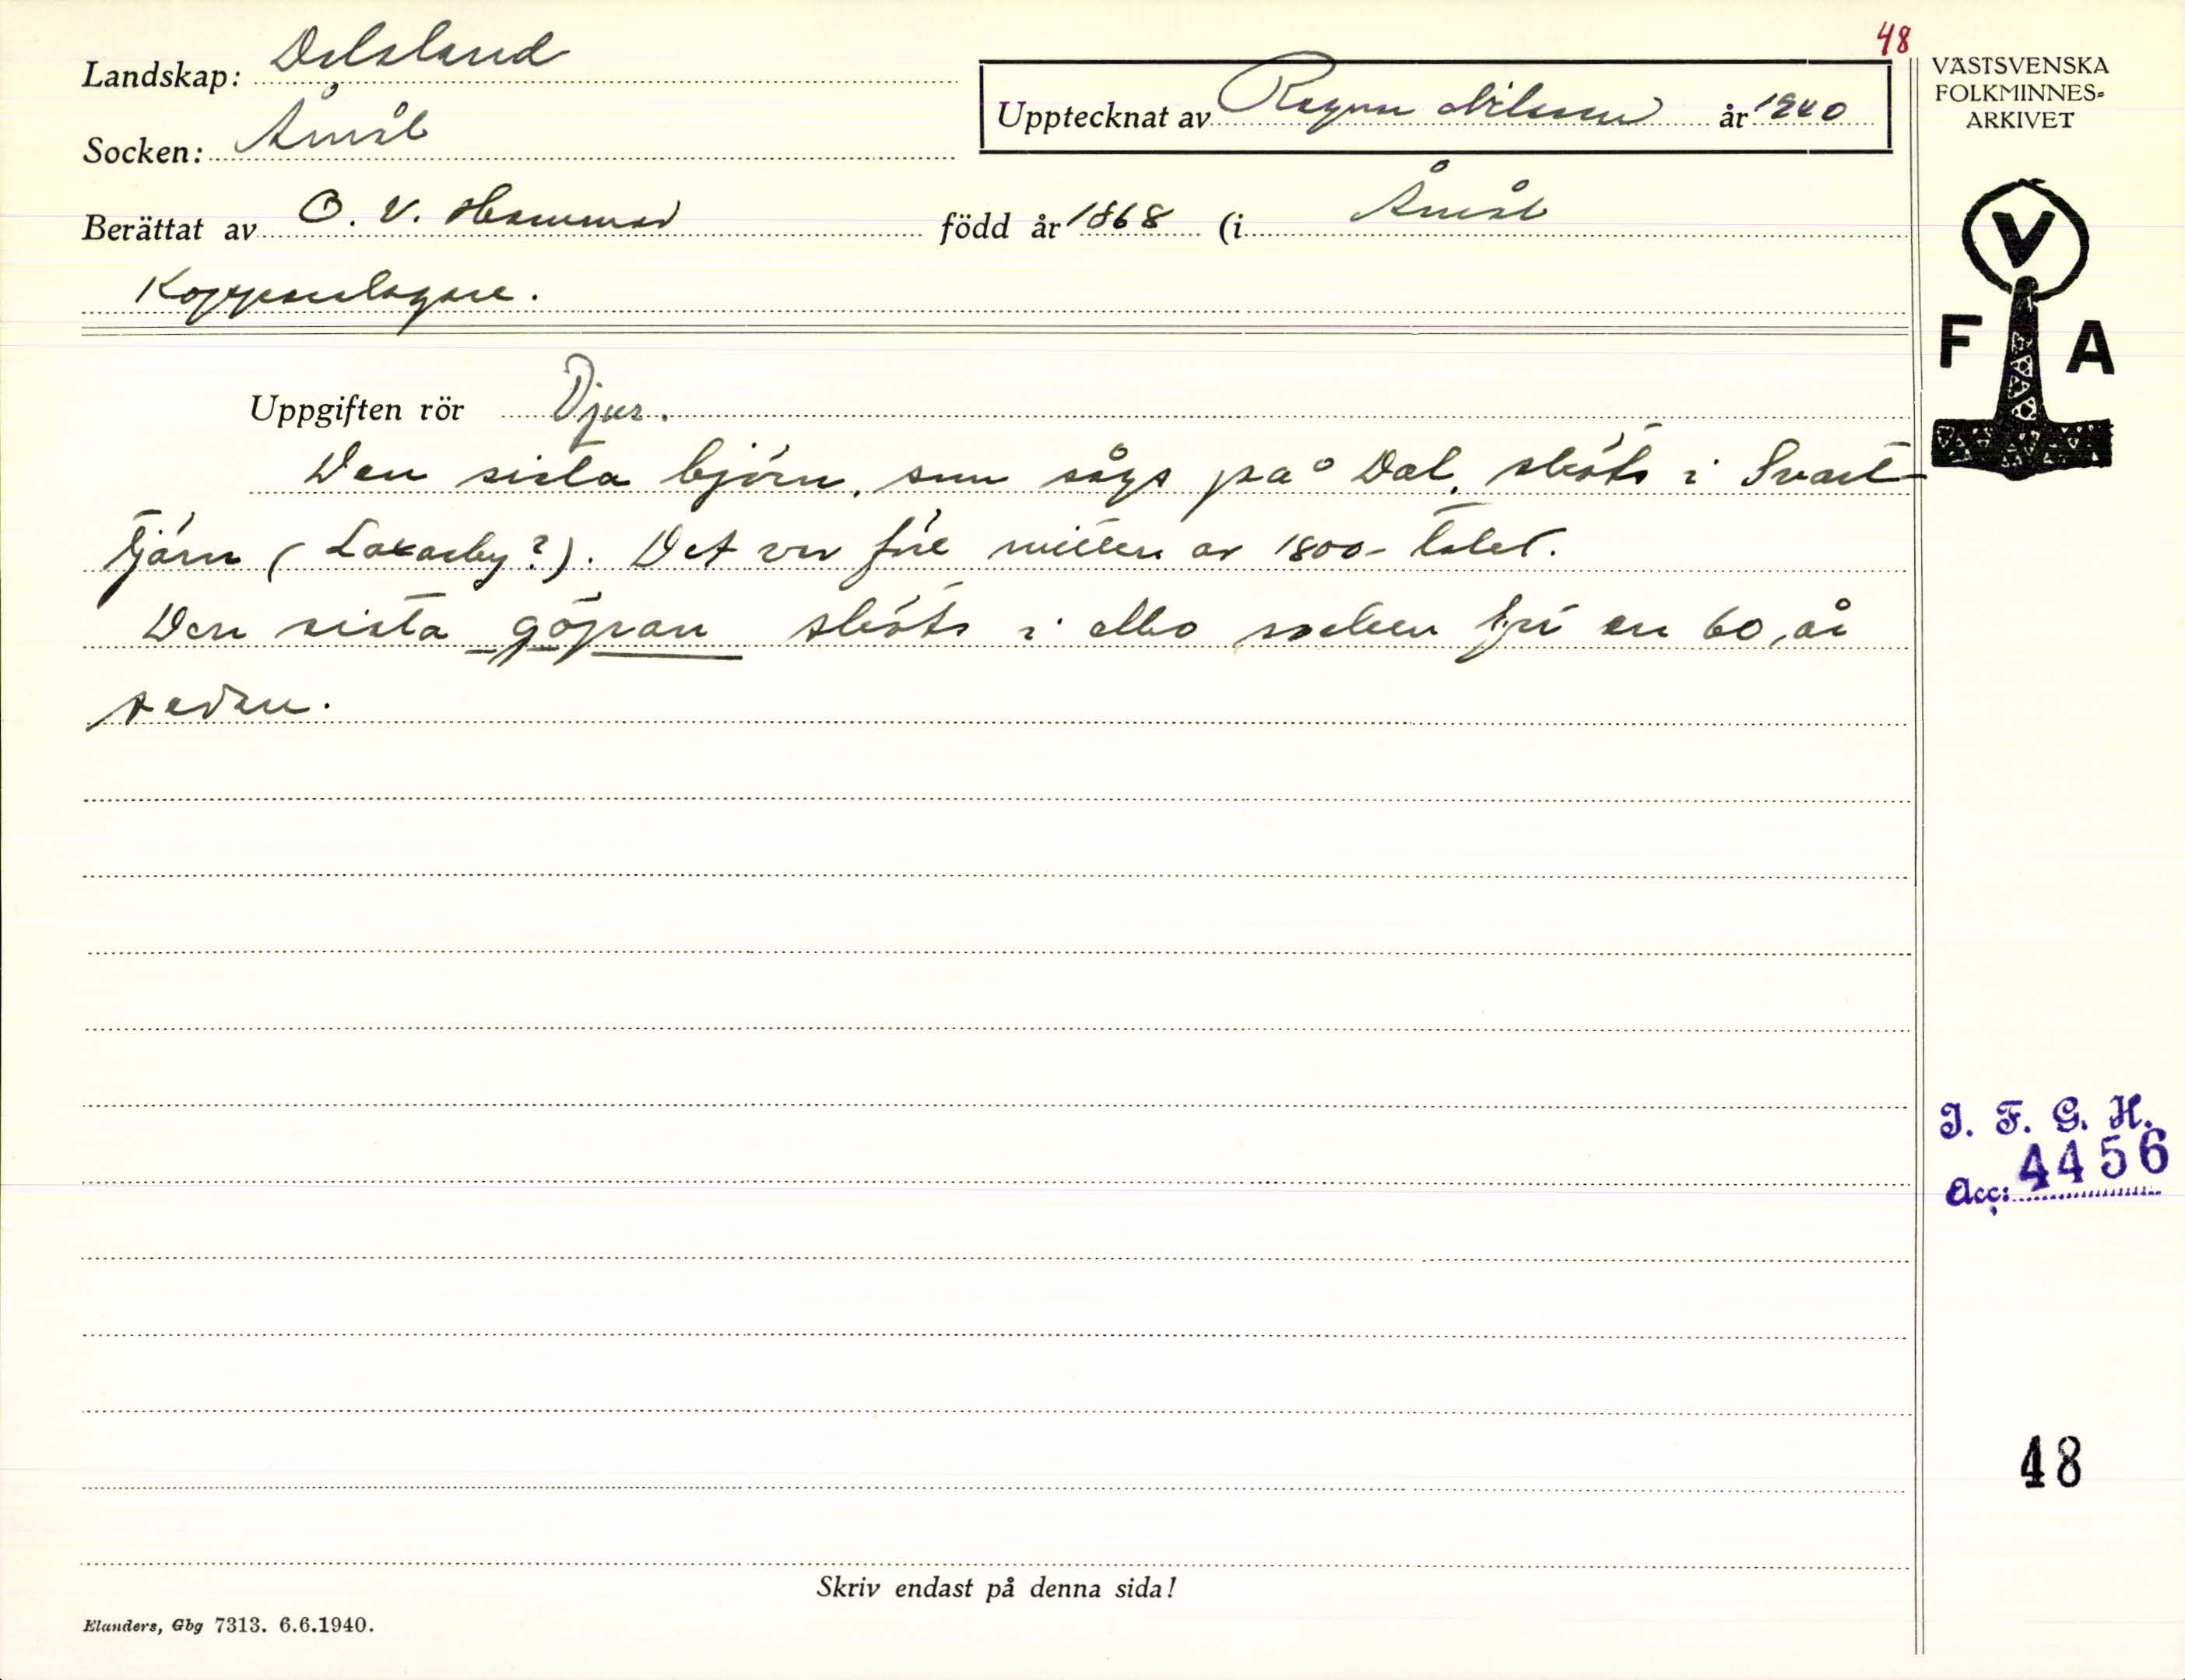 48
Landskap: Dalsland
Socken: Åmål
Upptecknat av Ragnar Nilsson år 1940
Berättat av O. V. Hammar född år 1868 (i Åmål
Kopparslagare.
VÄSTSVENSKA
FOLKMINNES=
ARKIVET
V
F A
Uppgiften rör Djur.
Den sista björn, som sågs på Dal, sköts i Svart-
tjärn (Laxarby?). Det var före mitten av 1800-talet.
Den sista göpan sköts i socken för en 60, år
sedan.
I. F. G. H.
Acc: 4456
48
Skriv endast på denna sida!
Elanders, Gbg 7313. 6.6.1940.